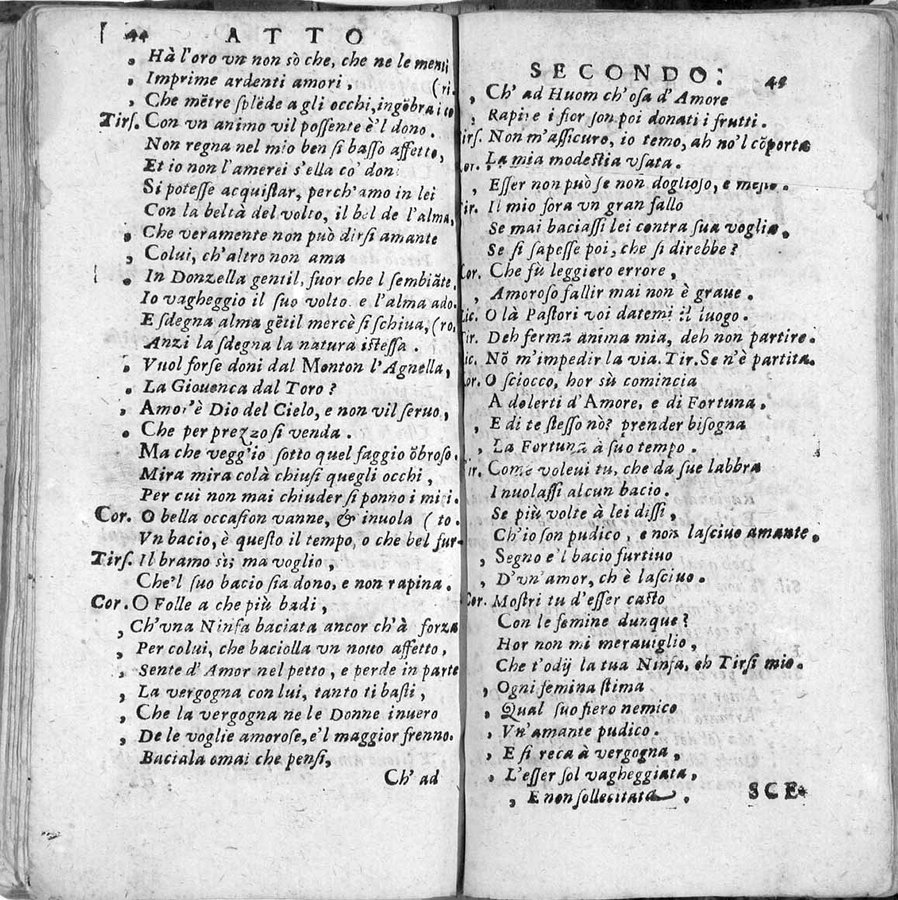 44 ATTO
, Hà l'oro vn non sò che, che ne le menti
, Imprime ardenti amori, (ri.
, Che mētre splēde a gli occhi, ingōbra i co
Tirs. Con vn animo vil possente è'l dono.
Non regna nel mio ben si basso affetto,
Et io non l'amerei s'ella co' don
Si potesse acquistar, perch'amo in lei
Con la beltà del volto, il bel de l'alma,
, Che veramente non può dirsi amante
, Colui, ch'altro non ama
, In Donzella gentil, fuor che l sembiāte.
Io vagheggio il suo volto e l'alma ado.
E sdegna alma gētil mercè si schiua, (ro,
Anzi la sdegna la natura istessa.
, Vuol forse doni dal Monton l'Agnella,
, La Giouenca dal Toro?
, Amor'è Dio del Cielo, e non vil seruo,
, Che per prezzo si venda.
Ma che vegg'io sotto quel faggio ōbroso.
Mira mira colà chiusi quegli occhi,
Per cui non mai chiuder si ponno i miei.
Cor. O bella occasion vanne, & inuola (to.
Vn bacio, è questo il tempo, o che bel fur-
Tirs. Il bramo sì; ma voglio,
Che'l suo bacio sia dono, e non rapina.
Cor. O Folle a che più badi,
, Ch'vna Ninfa baciata ancor ch'à forza
, Per colui, che baciolla vn nouo affetto,
, Sente d'Amor nel petto, e perde in parte
, La vergogna con lui, tanto ti basti,
, Che la vergogna ne le Donne inuero
, De le voglie amorose, e'l maggior frenno.
Baciala omai che pensi,
Ch' ad
SECONDO: 45
, Ch' ad Huom ch'osa d'Amore
, Rapire i fior son poi donati i frutti.
Tirs. Non m'assicuro, io temo, ah no'l cōporta
Cor. , La mia modestia vsata.
, Esser non può se non doglioso, e mesto.
Tir. Il mio fora vn gran fallo
Se mai baciassi lei contra sua voglia,
Se si sapesse poi, che si direbbe?
Cor. Che fù leggiero errore,
, Amoroso fallir mai non è graue.
Lic. O là Pastori voi datemi il luogo.
Tir. Deh ferma anima mia, deh non partire.
Lic. Nō m'impedir la via. Tir. Se n'è partita.
Cor. O sciocco, hor sù comincia
A dolerti d'Amore, e di Fortuna,
, E di te stesso nò? prender bisogna
, La Fortuna à suo tempo.
Tir. Come voleui tu, che da sue labbra
Inuolassi alcun bacio.
Se più volte à lei dissi,
Ch'io son pudico, e non lasciuo amante,
, Segno e'l bacio furtiuo
, D'vn'amor, ch è lasciuo.
Cor. Mostri tu d'esser casto
Con le femine dunque?
Hor non mi merauiglio,
Che t'odij la tua Ninfa, eh Tirsi mio.
, Ogni femina stima
, Qual suo fiero nemico
, Vn'amante pudico.
, E si reca à vergogna,
, L'esser sol vagheggiata,
, E non sollecitata.
SCE-